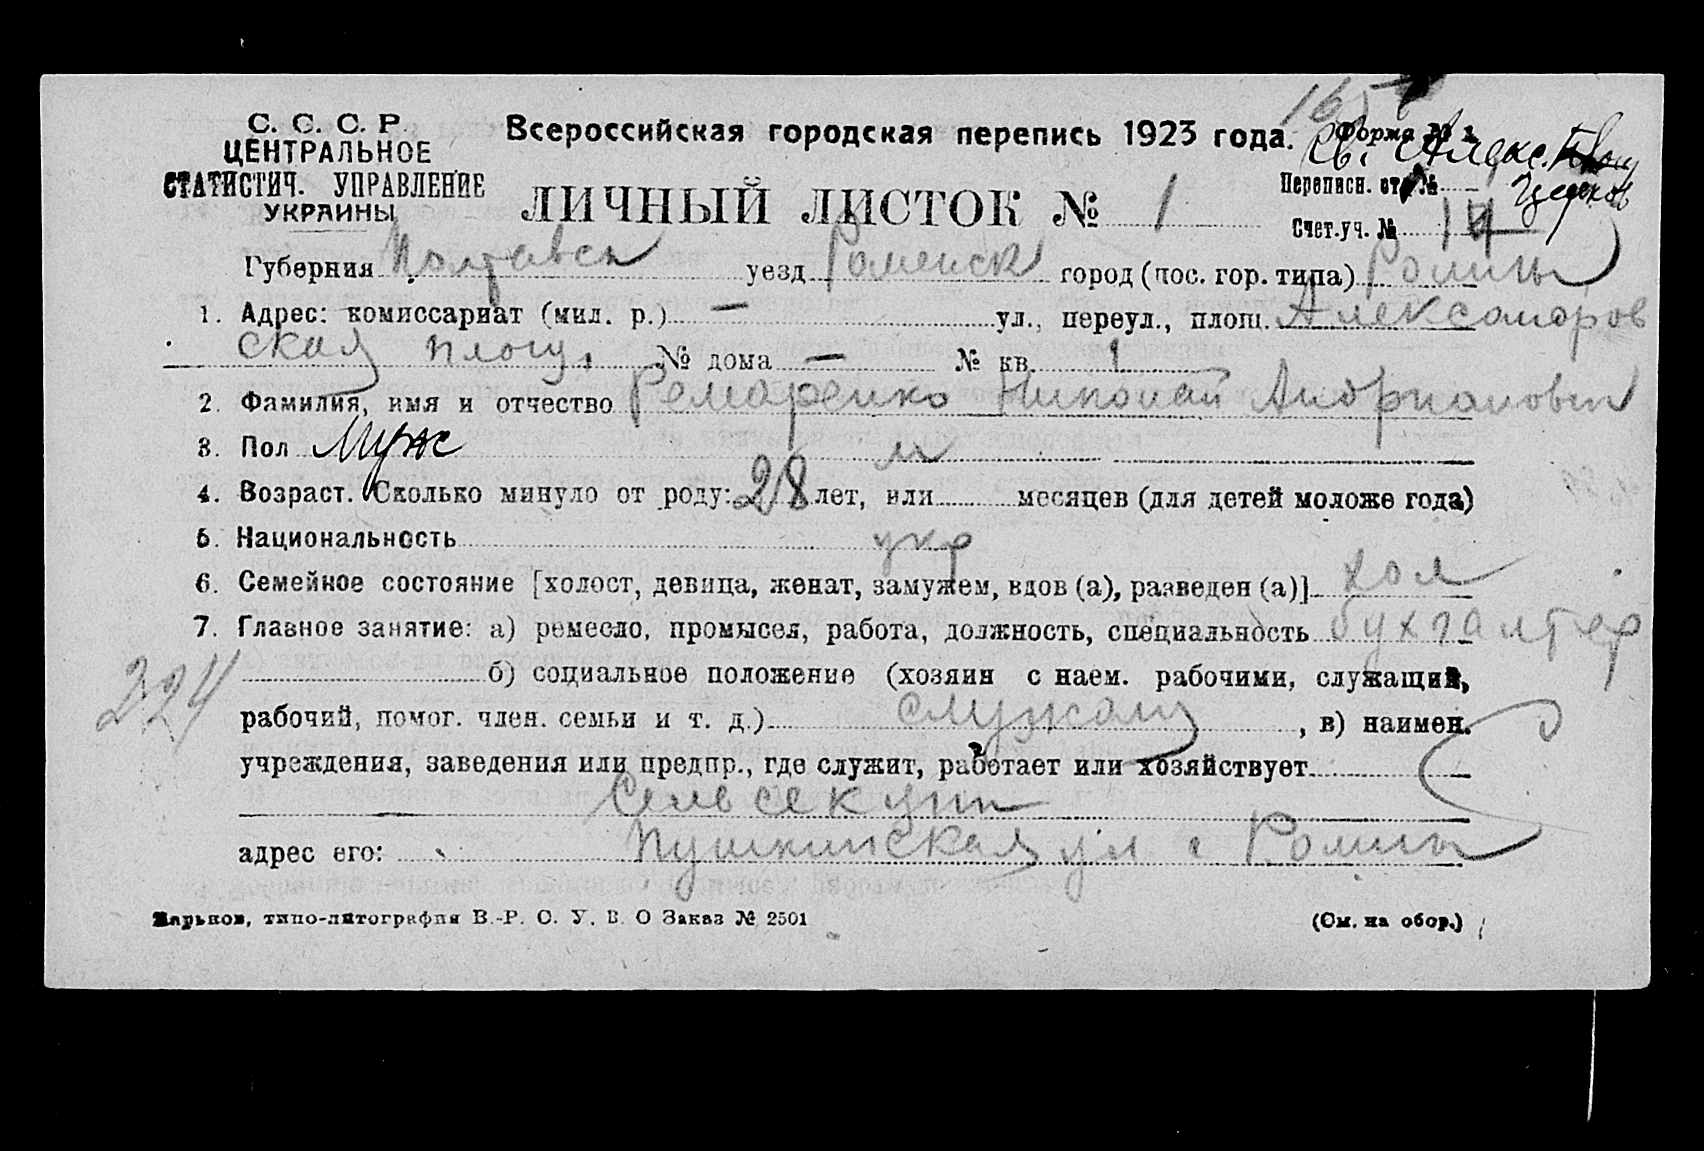 165
С. С. С. Р.
ЦЕНТРАЛЬНОЕ
СТАТИСТИЧ. УПРАВЛЕНИЕ
УКРАИНЫ
Всероссийская городская перепись 1923 года.
Форма № 1
Св. Алекс. Площ
церков
ЛИЧНЫЙ ЛИСТОК № 1
Переписн. от. №
Счет.уч. № 14
Губерния Полтавск уезд Роменск город (пос. гор. типа) Ромны
1. Адрес: комиссариат (мил. р.) — ул., переул., площ. Александров
ская площ. № дома — № кв. 1
2. Фамилия, имя и отчество Ремаренко Николай Андрианович
3. Пол Муж м
4. Возраст. Сколько минуло от роду: 28 лет, или месяцев (для детей моложе года)
5. Национальность укр
6. Семейное состояние [холост, девица, женат, замужем, вдов (а), разведен (а)] хол
7. Главное занятие: а) ремесло, промысел, работа, должность, специальность бухгалтер
б) социальное положение (хозяин с наем. рабочими, служащий,
224
рабочий, помог. член. семьи и т. д.) служащ , в) наимен.
учреждения, заведения или предпр., где служит, работает или хозяйствует
адрес его: Пушкинская ул г Ромны
Харьков, типо-литография В.-Р. С. У. В. О Заказ № 2501
(См. на обор.)